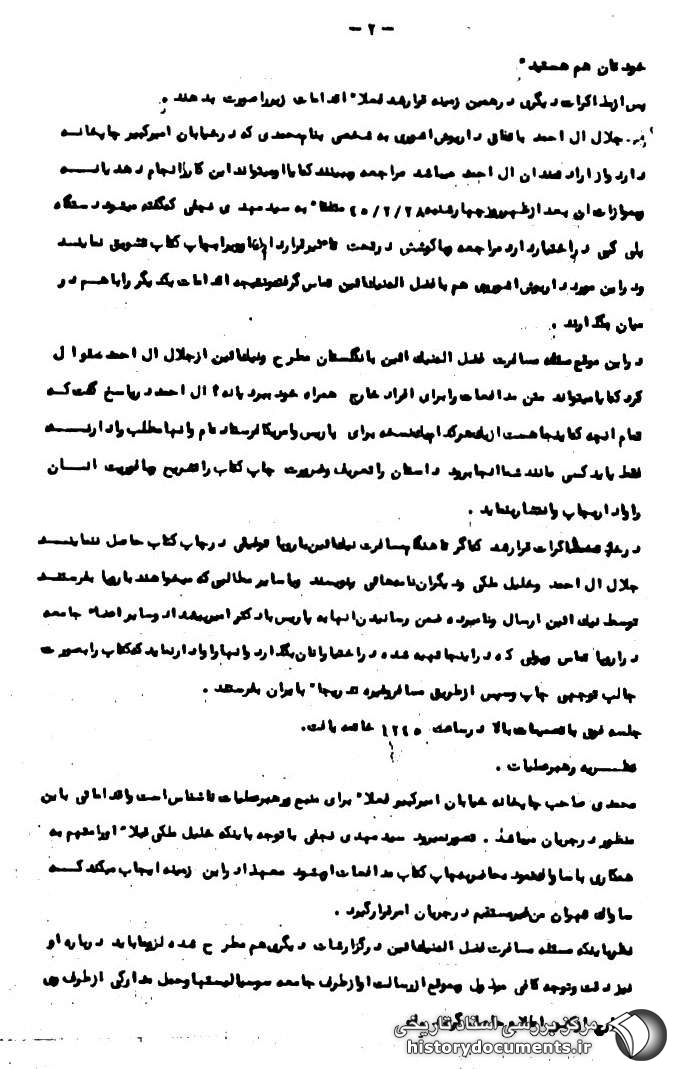 - ۲ -
خودتان هم هستید"
پس از مذاکرات دیگری در همین زمینه قرار شد فعلا" اقدامات زیر را صورت بدهند .
جلال ال احمد باتفاق داریوش اشوری به شخصی بنام محمدی که در خیابان امیرکبیر چاپخانه
دارد و از ارادتمندان ال احمد میباشد مراجعه و ببینند که ایا او میتواند این کار را انجام دهد یا نه
و بموازات ان بعد از ظهر روز چهارشنبه ۴۵/۲/۲۸ متفقا" به سید مهدی نجفی که گفته میشود دستگاه
پلی کپی در اختیار دارد مراجعه و با کوشش در تحت تاثیر قرار دادن او ویرا بچاپ کتاب تشویق نمایند
و در این مورد داریوش اشوری هم با فضل اله نیک ائین تماس گرفته و نتیجه اقدامات یکدیگر را با هم در
میان بگذارند .
در این موقع مسئله مسافرت فضل اله نیک ائین بانگلستان مطرح و نیک ائین از جلال ال احمد سئوال
کرد که ایا میتواند متن مدافعات را برای افراد خارج همراه خود ببرد یا نه؟ ال احمد در پاسخ گفت که
تمام انچه که اینجا هست از یک نسخه برای پاریس و امریکا فرستاده ام و انها مطلب را دارند
فقط باید کسی مانند شما انجا برود داستان را تعریف و ضرورت چاپ کتاب را تشریح و با فوریت انسان
را وادار بچاپ و انتشار بنماید .
در مذاکرات قرار شد که اگر تا هنگام مسافرت نیک ائین باروپا توفیقی در چاپ کتاب حاصل ننمایند
جلال ال احمد و خلیل ملکی و دیگران نامه هائی بنویسند و یا سایر مطالبی که میخواهند باروپا بفرستند
توسط نیک ائین ارسال و نامبرده ضمن رسانیدن انها به پاریس با دکتر امیر پیشداد و سایر اعضاء جامعه
در اروپا تماس و پولی که در اینجا تهیه شده در اختیار انان بگذارد و انها را وادار نماید که کتاب را بصورت
جالب توجهی چاپ و سپس از طریق مسافر و غیره تدریجا" بایران بفرستند .
جلسه فوق با تصمیمات بالا در ساعت ۱۲۴۵ خاتمه یافت.
نظریه رهبر عملیات .
محمدی صاحب چاپخانه خیابان امیرکبیر فعلا" برای منبع و رهبر عملیات ناشناس است و اقداماتی باین
منظور در جریان میباشد . تصور نمیرود سید مهدی نجفی با توجه باینکه خلیل ملکی قبلا" او را متهم به
همکاری با ساواک نموده حاضر به چاپ کتاب مدافعات او بشود معهذا در این زمینه ایجاب میکند که
ساواک تهران من غیر مستقیم در جریان امر قرار گیرد .
نظر باینکه مسئله مسافرت فضل اله نیک ائین در گزارشات دیگری هم مطرح شده لزوما باید درباره او
نیز دقت و توجه کافی مبذول و بموقع از رسالت او از طرف جامعه سوسیالیستها و حمل مدارکی از طرف وی
مرکز بررسی اسناد تاریخی
historydocuments.ir